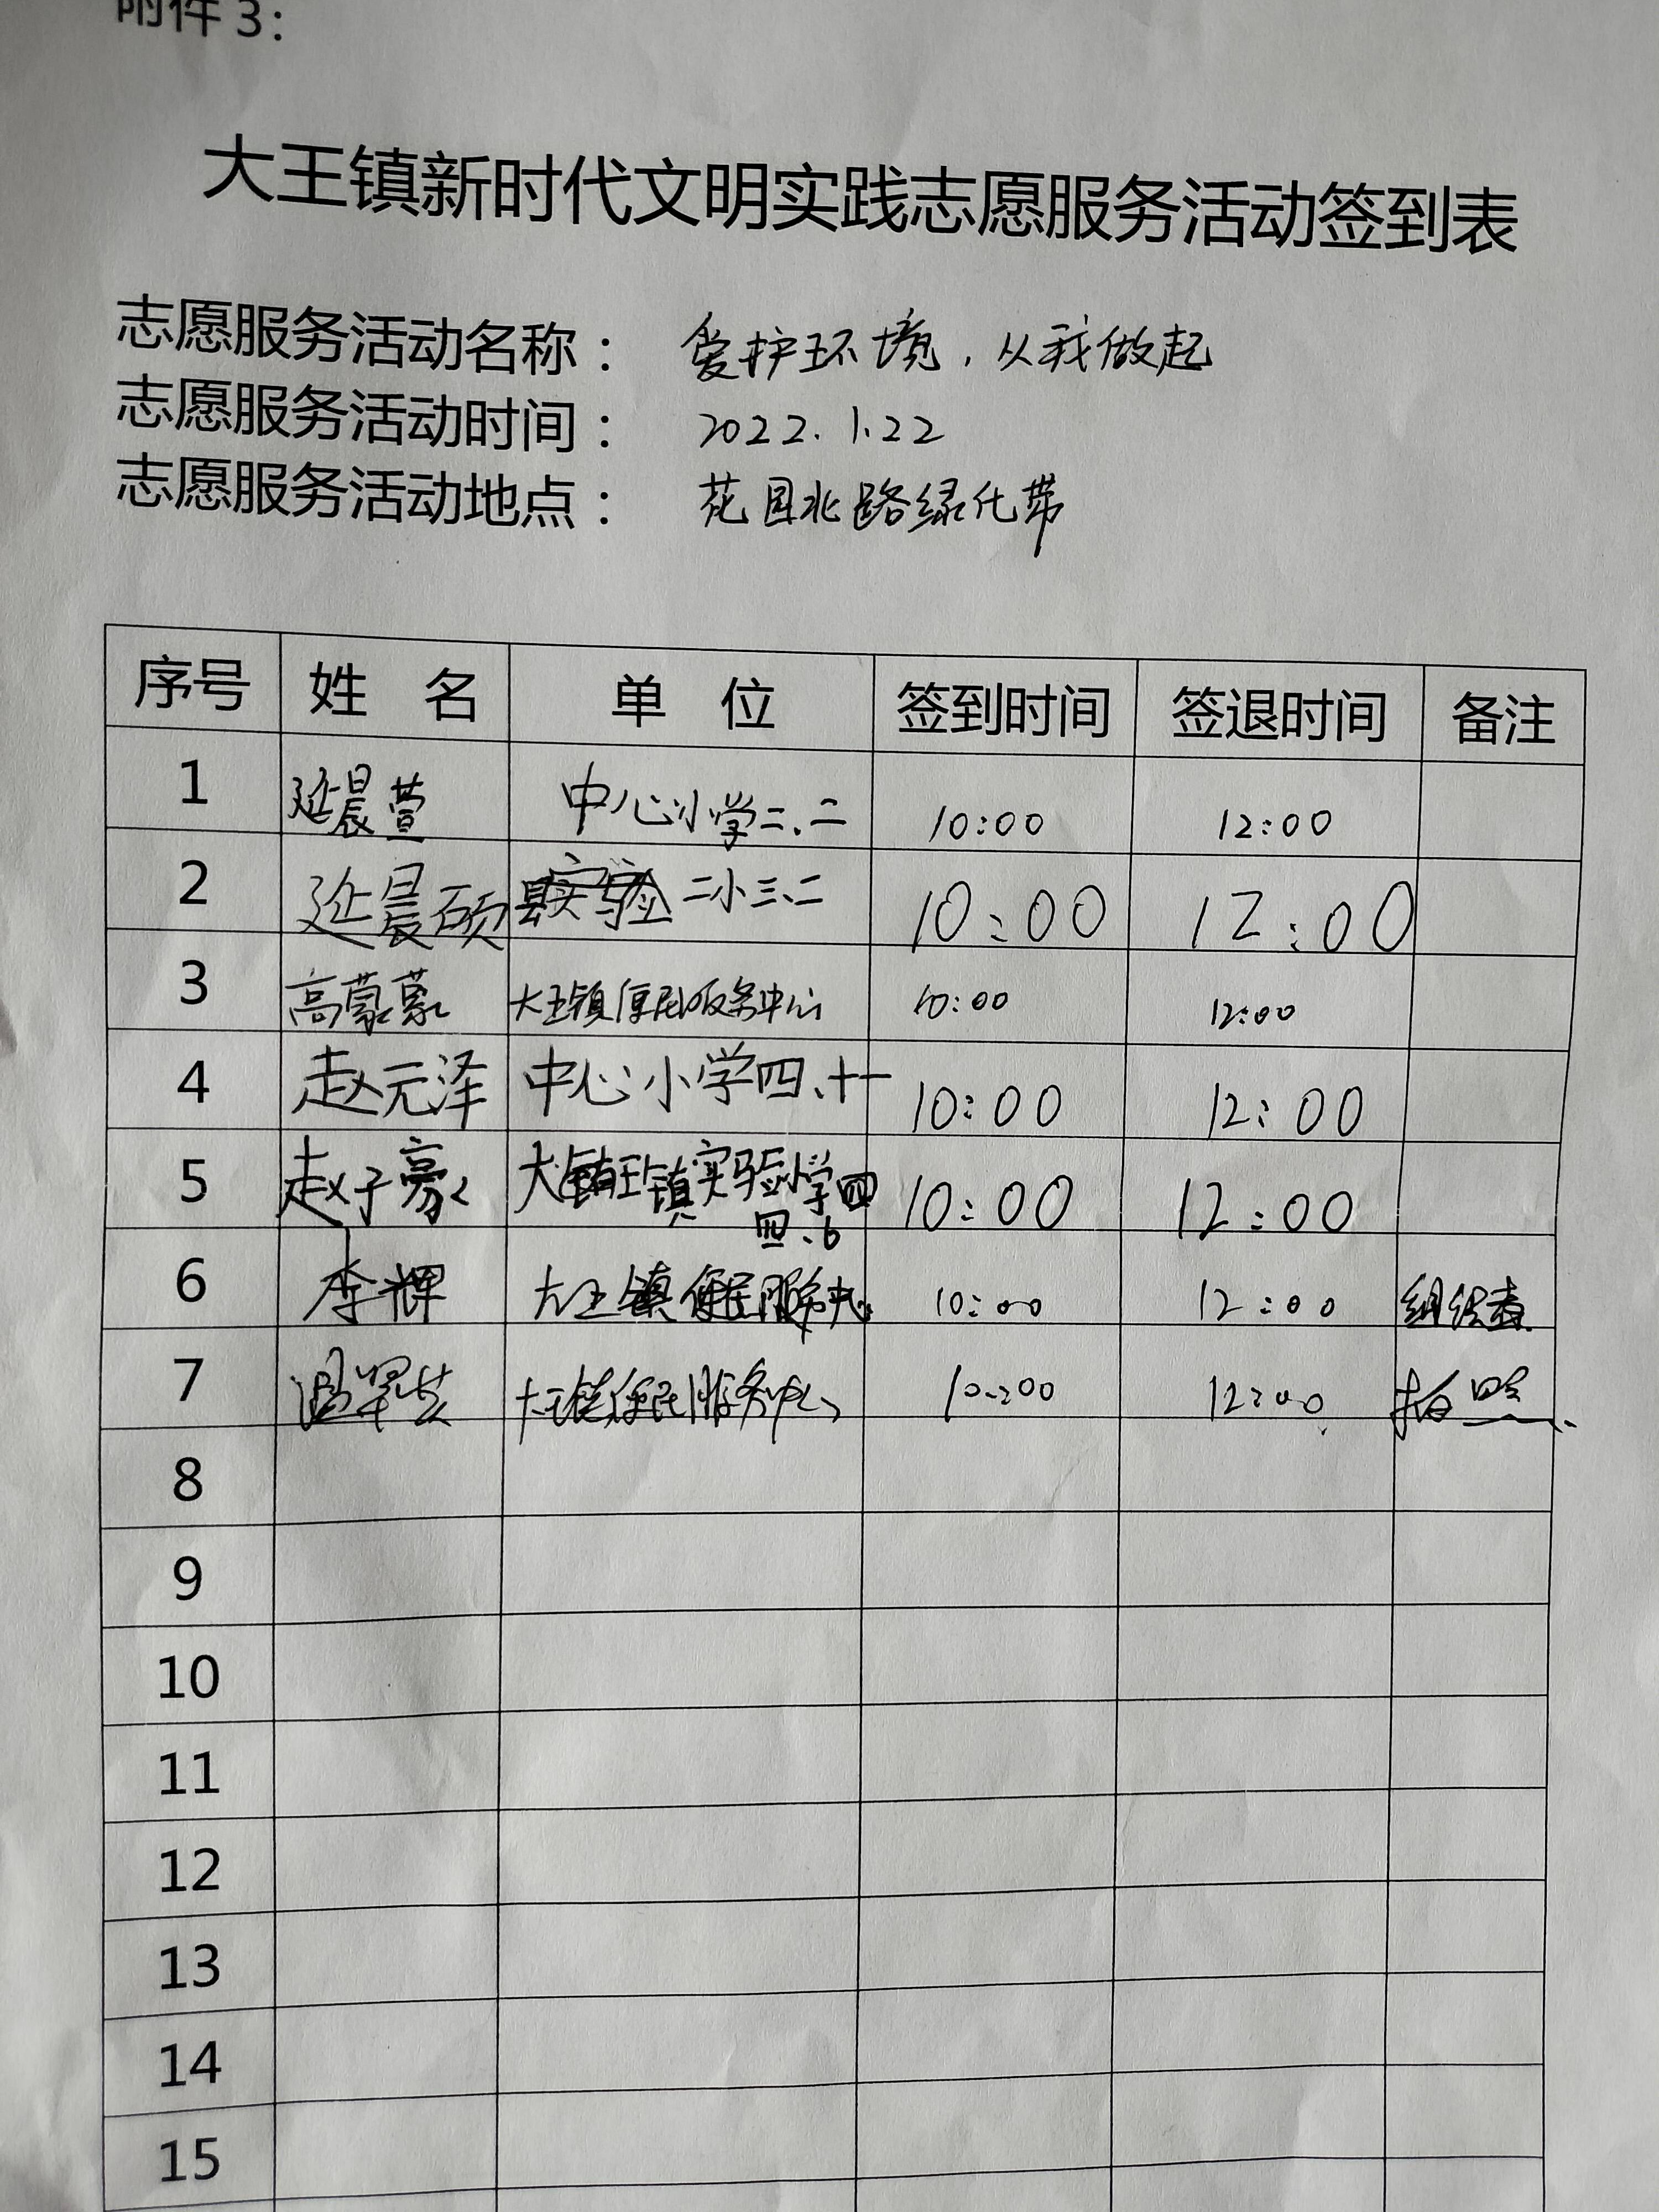 附件3：
大王镇新时代文明实践志愿服务活动签到表
志愿服务活动名称： 爱护环境，从我做起
志愿服务活动时间： 2022.1.22
志愿服务活动地点： 花园北路绿化带
序号 姓 名 单 位 签到时间 签退时间 备注
1 延晨萱 中心小学二、二 10:00 12:00
2 延晨硕 县实验二小三、二 10:00 12:00
3 高蒙蒙 大王镇便民服务中心 10:00 12:00
4 赵元泽 中心小学四、十一 10:00 12:00
5 赵子豪 大王镇实验小学四
四、6 10:00 12:00
6 李辉 大王镇便民服务中心 10:00 12:00 组织者
7 大王镇便民服务中心 10:00 12:00 拍照
8
9
10
11
12
13
14
15